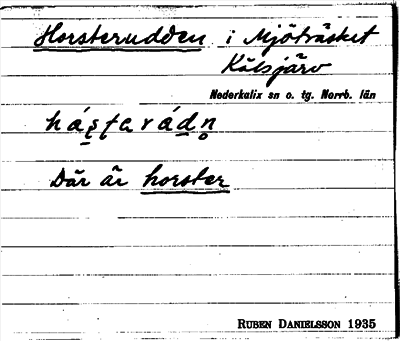 Horsterudden i Mjöträsket
Kälsjärv
Nederkalix sn o. tg. Norrb. län
Där är horster
RUBEN DANIELSSON 1935